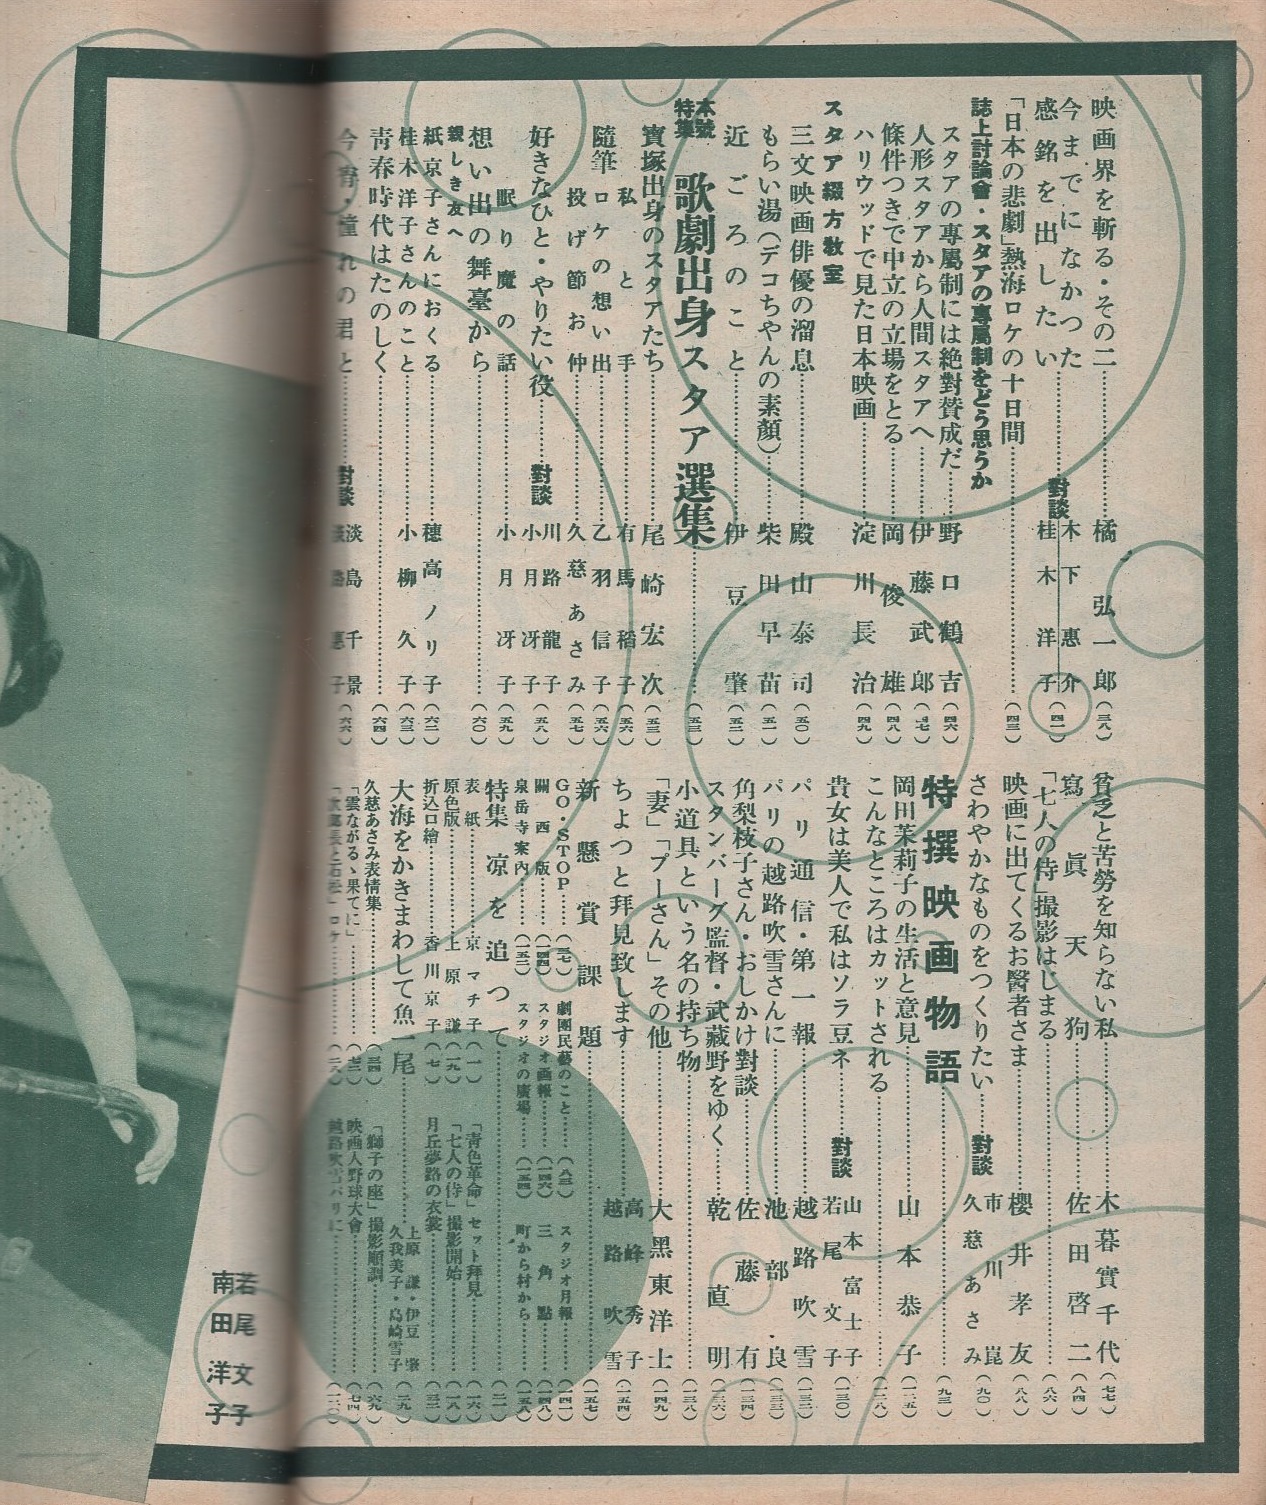 映画界を斬る・その二……橘弘一郎(三八)
今までになかつた
感銘を出したい……對談 木下惠介 桂木洋子(四一)
「日本の悲劇」熱海ロケの十日間……(四三)
誌上討論會・スタアの專屬制をどう思うか
スタアの專屬制には絶對賛成だ……野口鶴吉(四六)
人形スタアから人間スタアへ……伊藤武郎(四七)
條件つきで中立の立場をとる……岡俊雄(四八)
ハリウッドで見た日本映画……淀川長治(四九)
スタア綴方教室
三文映画俳優の溜息……殿山泰司(五〇)
もらい湯(デコちやんの素顔)……柴田早苗(五一)
近ごろのこと……伊豆肇(五二)
本號特集 歌劇出身スタア選集……(五三)
寶塚出身のスタアたち……尾崎宏次(五三)
隨筆 私と手……有馬稲子(五六)
ロケの想い出……乙羽信子(五六)
投げ節お仲……久慈あさみ(五七)
好きなひと・やりたい役……對談 川路龍子 小月冴子(五八)
眠り魔の話……小月冴子(五九)
想い出の舞臺から……(六〇)
親しき友へ
紙京子さんにおくる……穂高ノリ子(六二)
桂木洋子さんのこと……小柳久子(六三)
靑春時代はたのしく……(六四)
今宵・憧れの君と……對談 淡島千景 淡路惠子(六六)
貧乏と苦勞を知らない私……木暮實千代(七七)
寫眞天狗……佐田啓二(八四)
「七人の侍」撮影はじまる……(八六)
映画に出てくるお醫者さま……櫻井孝友(八八)
さわやかなものをつくりたい……對談 市川崑 久慈あさみ(九〇)
特撰映画物語……(九三)
岡田茉莉子の生活と意見……山本恭子(一二五)
こんなところはカットされる……(一二八)
貴女は美人で私はソラ豆ネ……對談 山本富士子 若尾文子(一三〇)
パリ通信・第一報……越路吹雪(一三二)
パリの越路吹雪さんに……池部良(一三三)
角梨枝子さん・おしかけ對談……佐藤有(一三四)
スタンバーグ監督・武蔵野をゆく……乾直明(一三六)
小道具という名の持ち物……(一三八)
「妻」「プーさん」その他……大黑東洋士(一四九)
ちよつと拜見致します……高峰秀子 越路吹雪(一五四)
新懸賞課題……(一五七)
GO・STOP……(三七)
劇團民藝のこと……(八三)
スタジオ月報……(一四一)
關西版……(一四四)
スタジオ画報……(一四六)
三角點……(一四八)
泉岳寺案內……(一五二)
スタジオの廣場……(一五四)
町から村から……(一五八)
特集 涼を追つて……(二一)
表紙……京マチ子(一)
「靑色革命」セット拜見……(一六)
原色版……上原謙(一九)
「七人の侍」撮影開始……(一八)
折込口繪……香川京子(七)
月丘夢路の衣裳……(三三)
大海をかきまわして魚一尾……上原謙・伊豆肇 久我美子・島崎雪子(二九)
久慈あさみ表情集……(三四)
「獅子の座」撮影順調……(六九)
「雲ながるゝ果てに」……(七三)
映画人野球大會……(七四)
ロケ……(二八)
越路吹雪パリに……(一二〇)
若尾文子
南田洋子